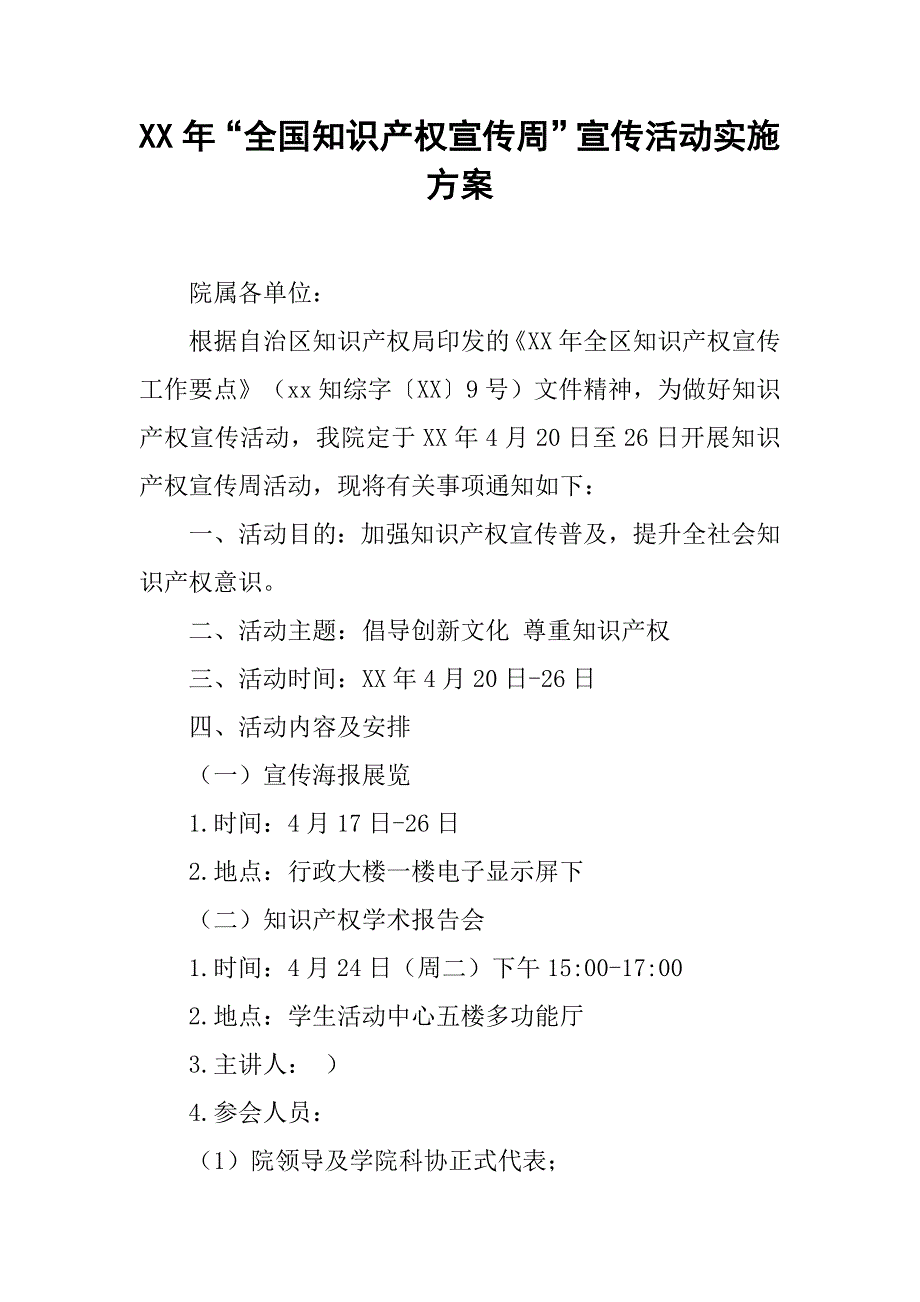 XX 年“全国知识产权宣传周”宣传活动实施
方案
院属各单位：
根据自治区知识产权局印发的《XX 年全区知识产权宣传
工作要点》（xx 知综字〔XX〕9 号）文件精神，为做好知识
产权宣传活动，我院定于 XX 年 4 月 20 日至 26 日开展知识
产权宣传周活动，现将有关事项通知如下：
一、活动目的：加强知识产权宣传普及，提升全社会知
识产权意识。
二、活动主题：倡导创新文化 尊重知识产权
三、活动时间：XX 年 4 月 20 日-26 日
四、活动内容及安排
（一）宣传海报展览
1.时间：4 月 17 日-26 日
2.地点：行政大楼一楼电子显示屏下
（二）知识产权学术报告会
1.时间：4 月 24 日（周二）下午 15:00-17:00
2.地点：学生活动中心五楼多功能厅
3.主讲人： ）
4.参会人员：
（1）院领导及学院科协正式代表；